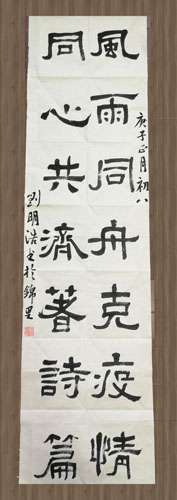 風雨同舟克疫情
庚子正月初八
同心共濟著詩篇
劉明浩書於錦里